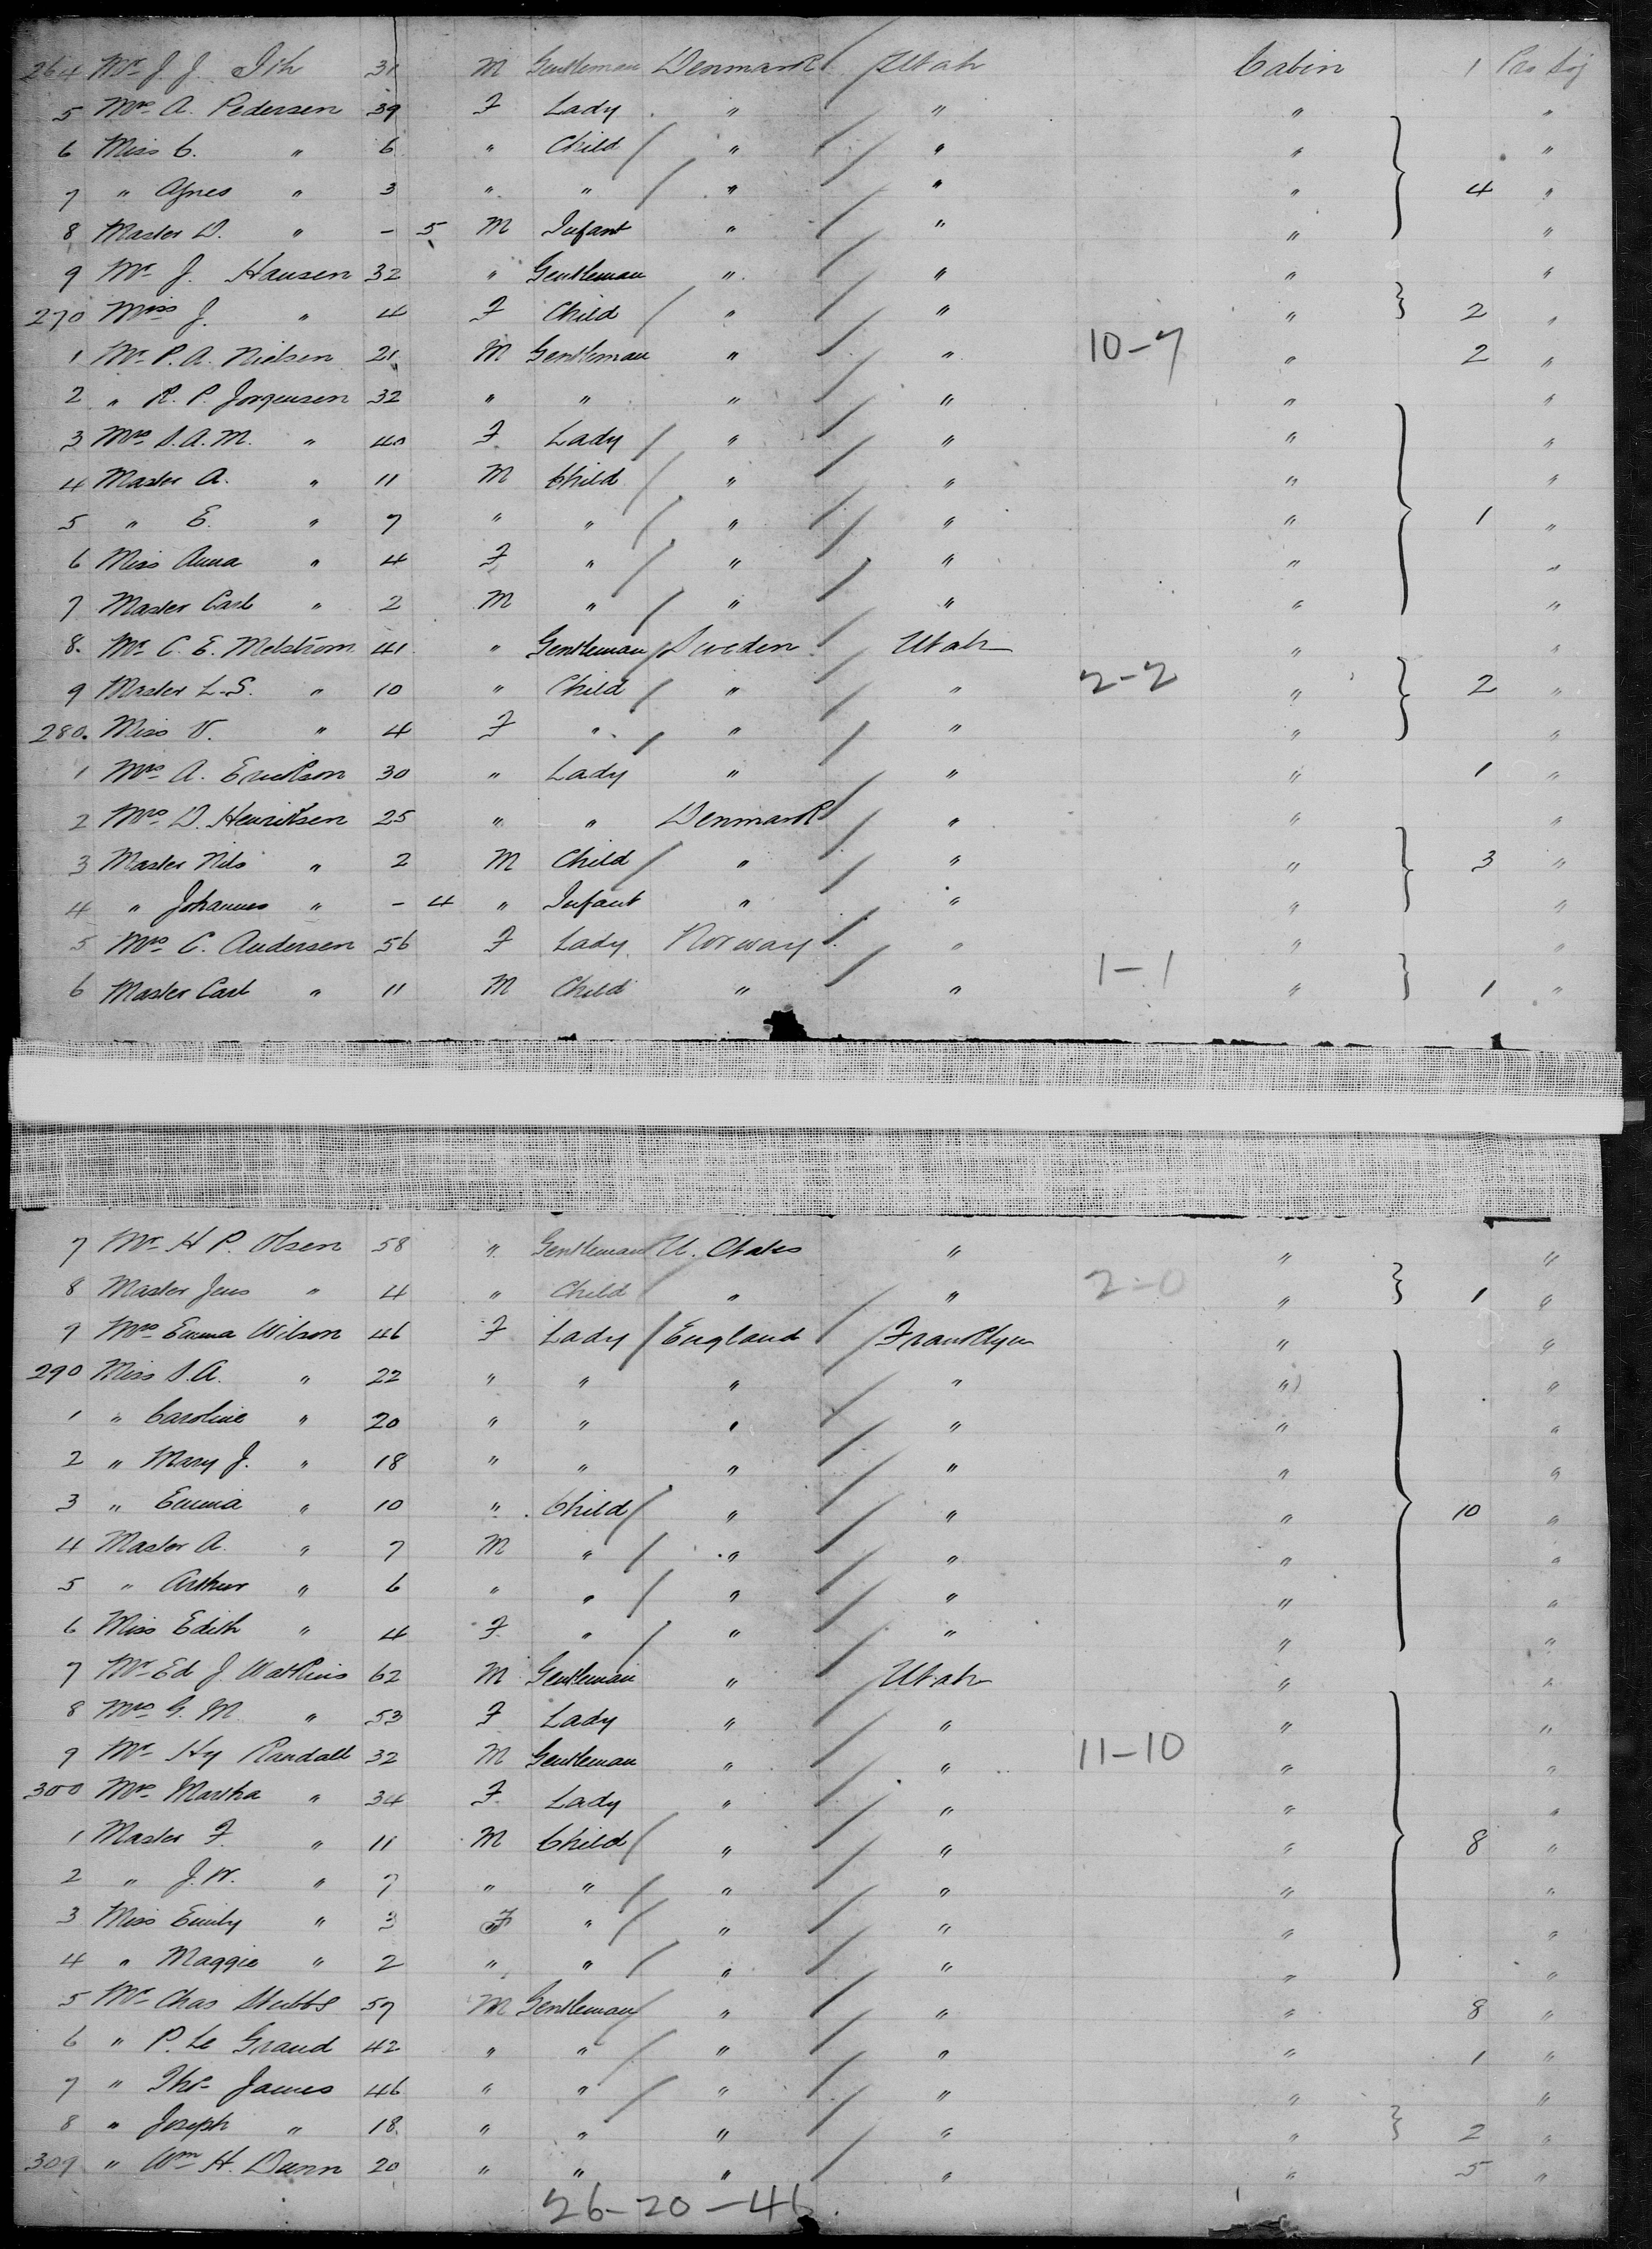 264 Mr J. J. Ith 31 M Gentleman Denmark Utah Cabin 1
5 Mrs A. Pedersen 39 F Lady " " " "
6 Miss C. " 6 " Child " " " "
7 " Agnes " 3 " " " " " 4 "
8 Master D. " - 5 M Infant " " " "
9 Mr J. Hansen 32 " Gentleman " " " "
270 Miss J. " 4 F Child " " " 2 "
1 Mr P. A. Nielsen 21 M Gentleman " " 10-7 " 2 "
2 " R. P. Jorgensen 32 " " " " " "
3 Mrs S. A. M. " 40 F Lady " " " "
4 Master A. " 11 M Child " " " "
5 " E. " 7 " " " " " 1 "
6 Miss Anna " 4 F " " " " "
7 Master Carl " 2 M " " " " "
8. Mr C. E. Melstrom 41 " Gentleman Sweden Utah " "
9 Master L. S. " 10 " Child " " 2-2 " 2 "
280. Miss V. " 4 F " " " " "
1 Mrs A. Erickson 30 " Lady " " " 1 "
2 Mrs D. Henriksen 25 " " Denmark " " "
3 Master Nils " 2 M Child " " " 3 "
4 " Johannes " - 4 " Infant " " " "
5 Mrs C. Andersen 56 F Lady Norway " " "
6 Master Carl " 11 M Child " " 1-1 " 1 "
7 Mr H P. Olsen 58 " Gentleman U. States " " "
8 Master Jens " 4 " Child " " 2-0 " 1 "
9 Mrs Emma Wilson 46 F Lady England Franklyn " "
290 Miss S. A. " 22 " " " " " "
1 " Caroline " 20 " " " " " "
2 " Mary J. " 18 " " " " " "
3 " Emma " 10 " Child " " " 10 "
4 Master A. " 7 M " " " " "
5 " Arthur " 6 " " " " " "
6 Miss Edith " 4 F " " " " "
7 Mr Ed J. Watkins 62 M Gentleman " Utah " "
8 Mrs G. M " 53 F Lady " " " "
9 Mr Hy Randall 32 M Gentleman " " 11-10 " "
300 Mrs Martha " 34 F Lady " " " "
1 Master F. " 11 M Child " " " 8 "
2 " J. W. " 7 " " " " " "
3 Miss Emily " 3 F " " " " "
4 " Maggie " 2 " " " " " "
5 Mr Chas Stubbs 57 M Gentleman " " " 8 "
6 " P. Le Grand 42 " " " " " 1 "
7 " Thos James 46 " " " " " "
8 " Joseph " 18 " " " " " 2 "
309 " Wm H. Dunn 20 " " " " " 5 "
26-20-46